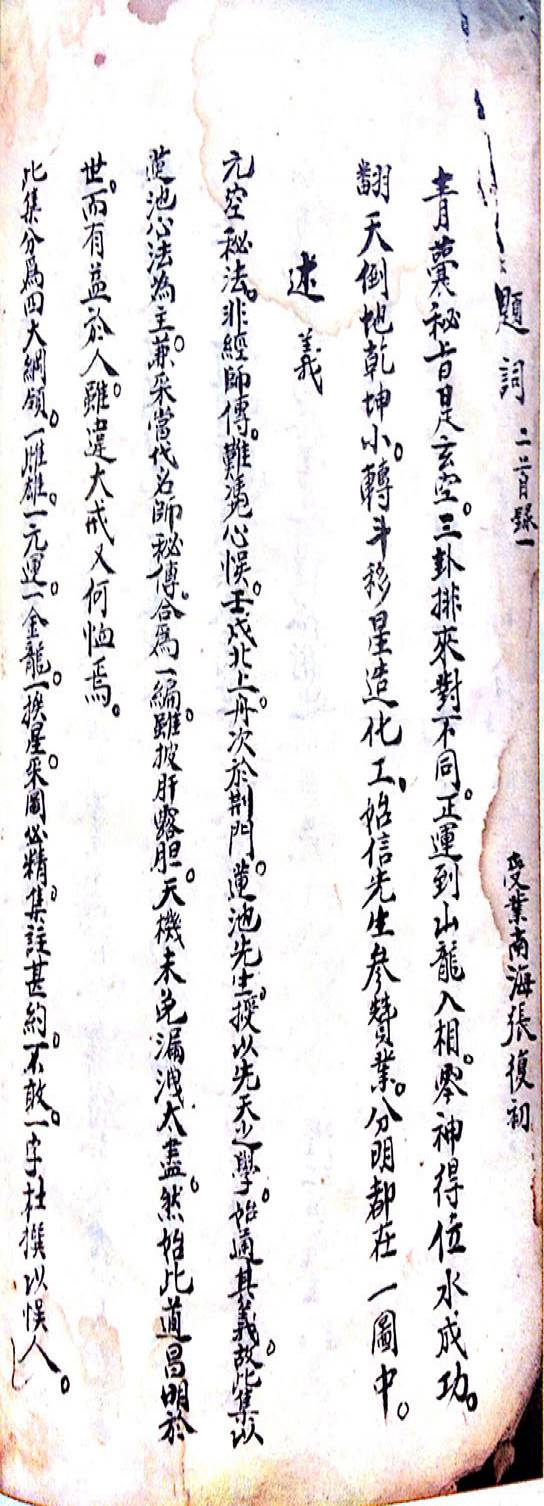 題詞 二首錄一 受業南海張復初
青囊秘旨是玄空。三卦排來對不同。正運到山龍入相。零神得位水成功。
翻天倒地乾坤小。轉斗移星造化工。始信先生參贊業。分明都在一圖中。
述義
元空秘法。非經師傳。難憑心悞。壬戌北上。舟次於荆門。蓮池先生。授以先天之學。始通其義。故此集以
蓮池心法為主。兼采當代名師秘傳。合爲一編。雖披肝露胆。天機未免漏洩太盡。然始此道昌明於
世。而有益於人。雖違大戒又何恤焉。
此集分爲四大綱領。一雌雄。一元運。一金龍。一挨星。采圖必精。集註甚約。不敢。一字杜撰以悞人。